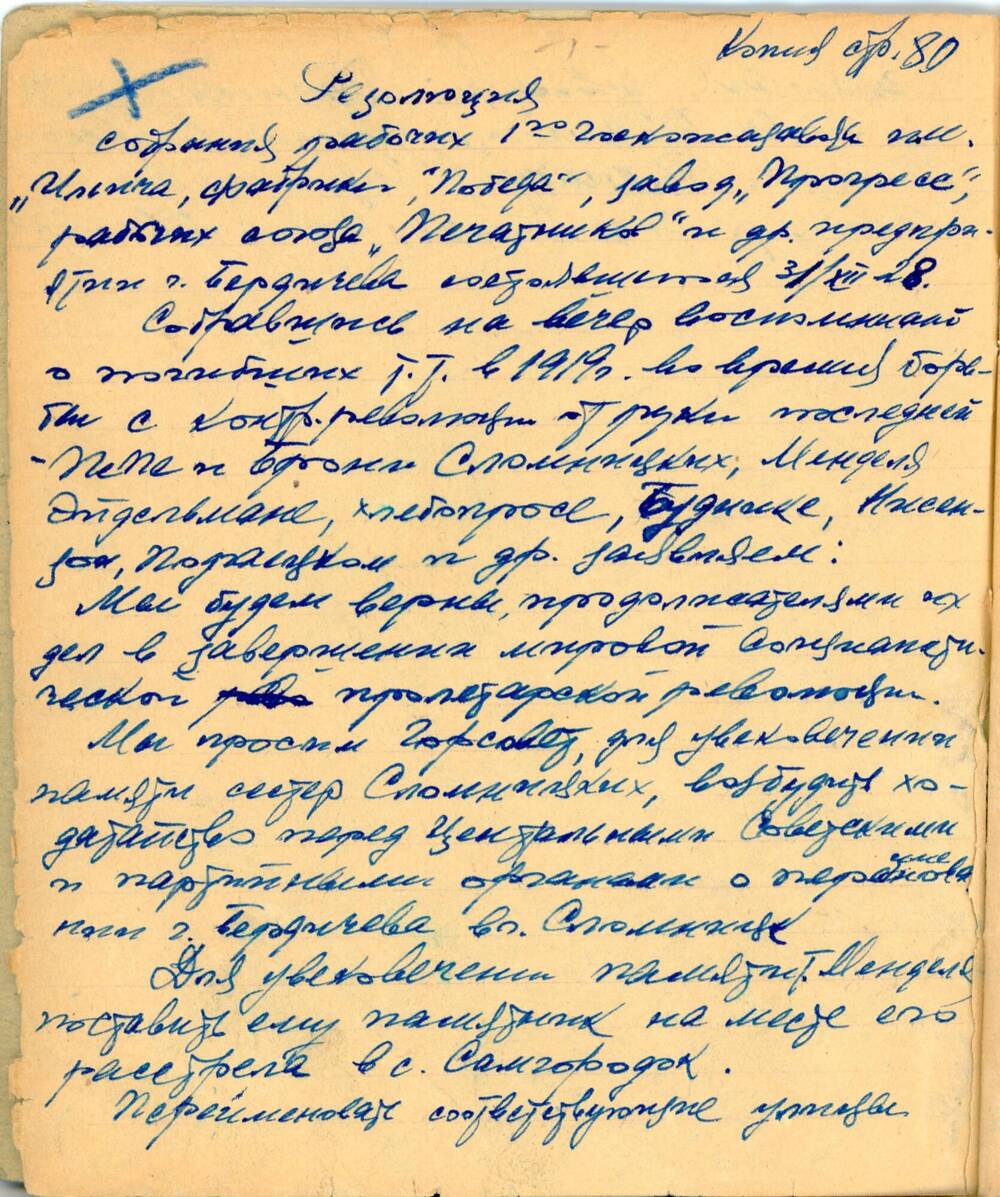 Копия стр. 80
Резолюция
собрания рабочих 1го Госкожзавода им.
„Ильича, фабрики „Победа“, завод „Прогресс“,
рабочих союза „Печатников“ и др. предпри-
ятии г. Бердичева состоявшегося 31/XII 28.
Собравшись на вечер воспоминаний
о погибших т.т. в 1919г. во время борь-
бы с контр.революции от руки последней
- Пепе и Брони Сломницких, Менделя
Эйдельмане, Хлебопросе, Буднике, Нисен-
зон, Подгаецком и др. заявляем:
Мы будем верны, продолжателями их
дел в завершении мировой социалисти-
ческой пролетарской революции.
Мы просим Горсовет, для увековечения
памяти сестер Сломницких, возбудить хо-
датайство перед Центральными Советскими
и партийными органами о переименова
нии г. Бердичева в г. Сломницк
Для увековечения памяти т. Менделя
поставить ему памятник на месте его
расстрела в с. Самгородок.
Переименовать соответствующие улицы